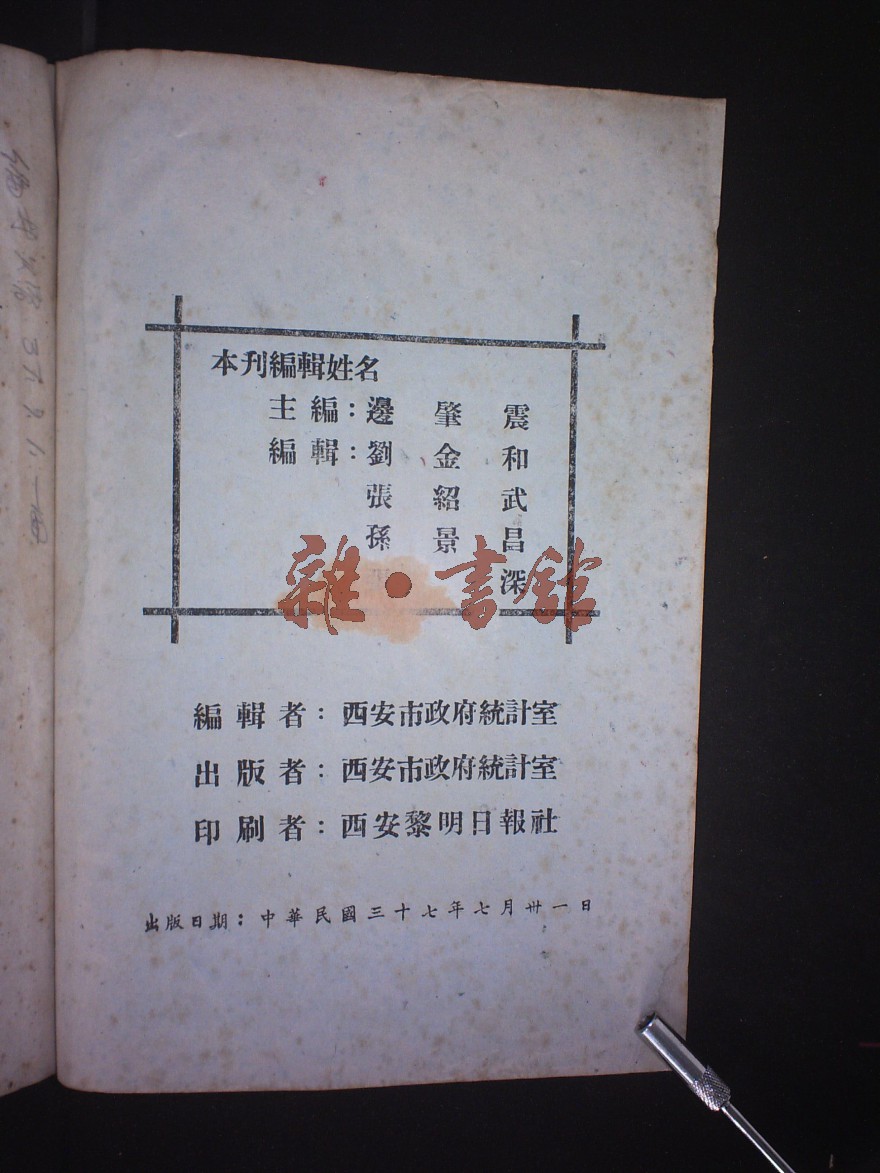 本刊編輯姓名
主編：邊肇震
編輯：劉金和
張紹武
孫景昌
深
雜·書館
編輯者：西安市政府統計室
出版者：西安市政府統計室
印刷者：西安黎明日報社
出版日期：中華民國三十七年七月卅一日